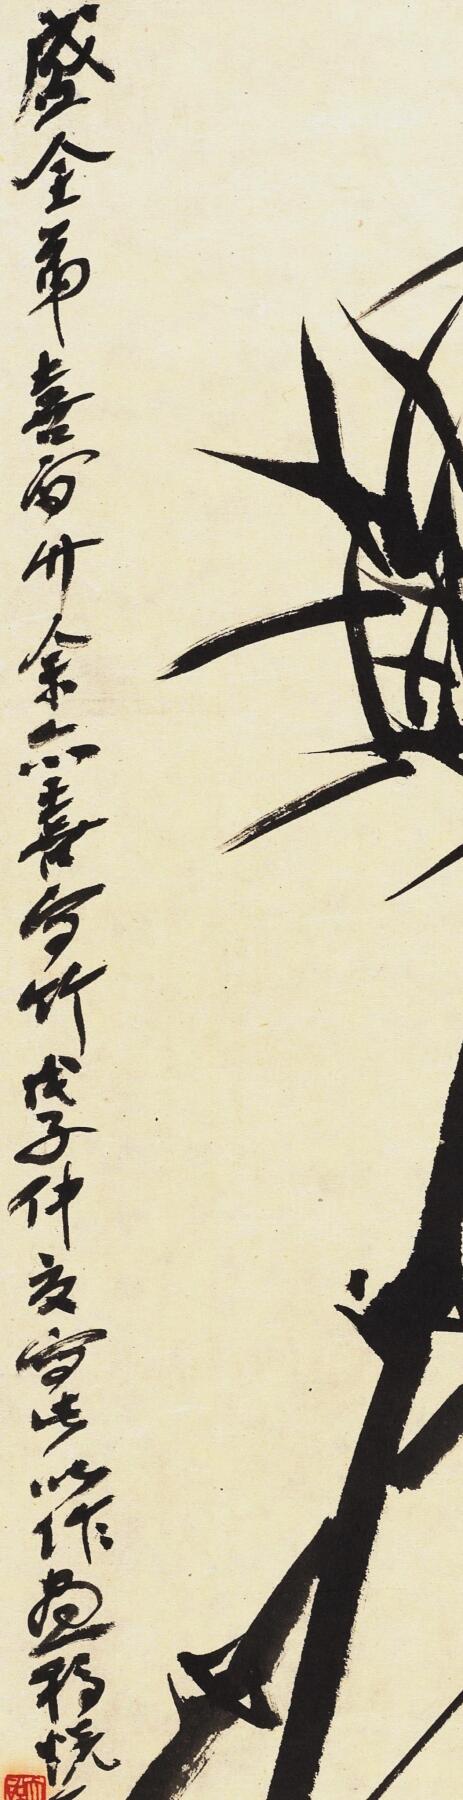 盛全弟喜画竹余亦喜写竹戊子仲夏写此以作画稿